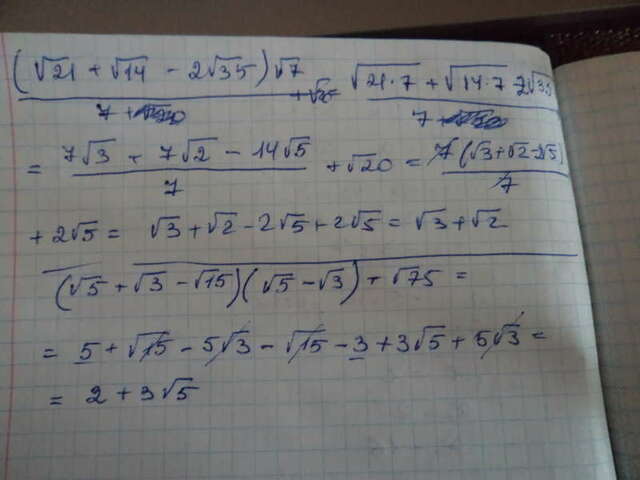 (√21 + √14 - 2√35)√7 / 7 + √20 = √21·7 + √14·7 - 2√35
= 7√3 + 7√2 - 14√5 / 7 + √20 = 7(√3+√2-2√5) / 7
+ 2√5 = √3 + √2 - 2√5 + 2√5 = √3 + √2
(√5 + √3 - √15)(√5 - √3) + √75 =
= 5 + √15 - 5√3 - √15 - 3 + 3√5 + 5√3 =
= 2 + 3√5